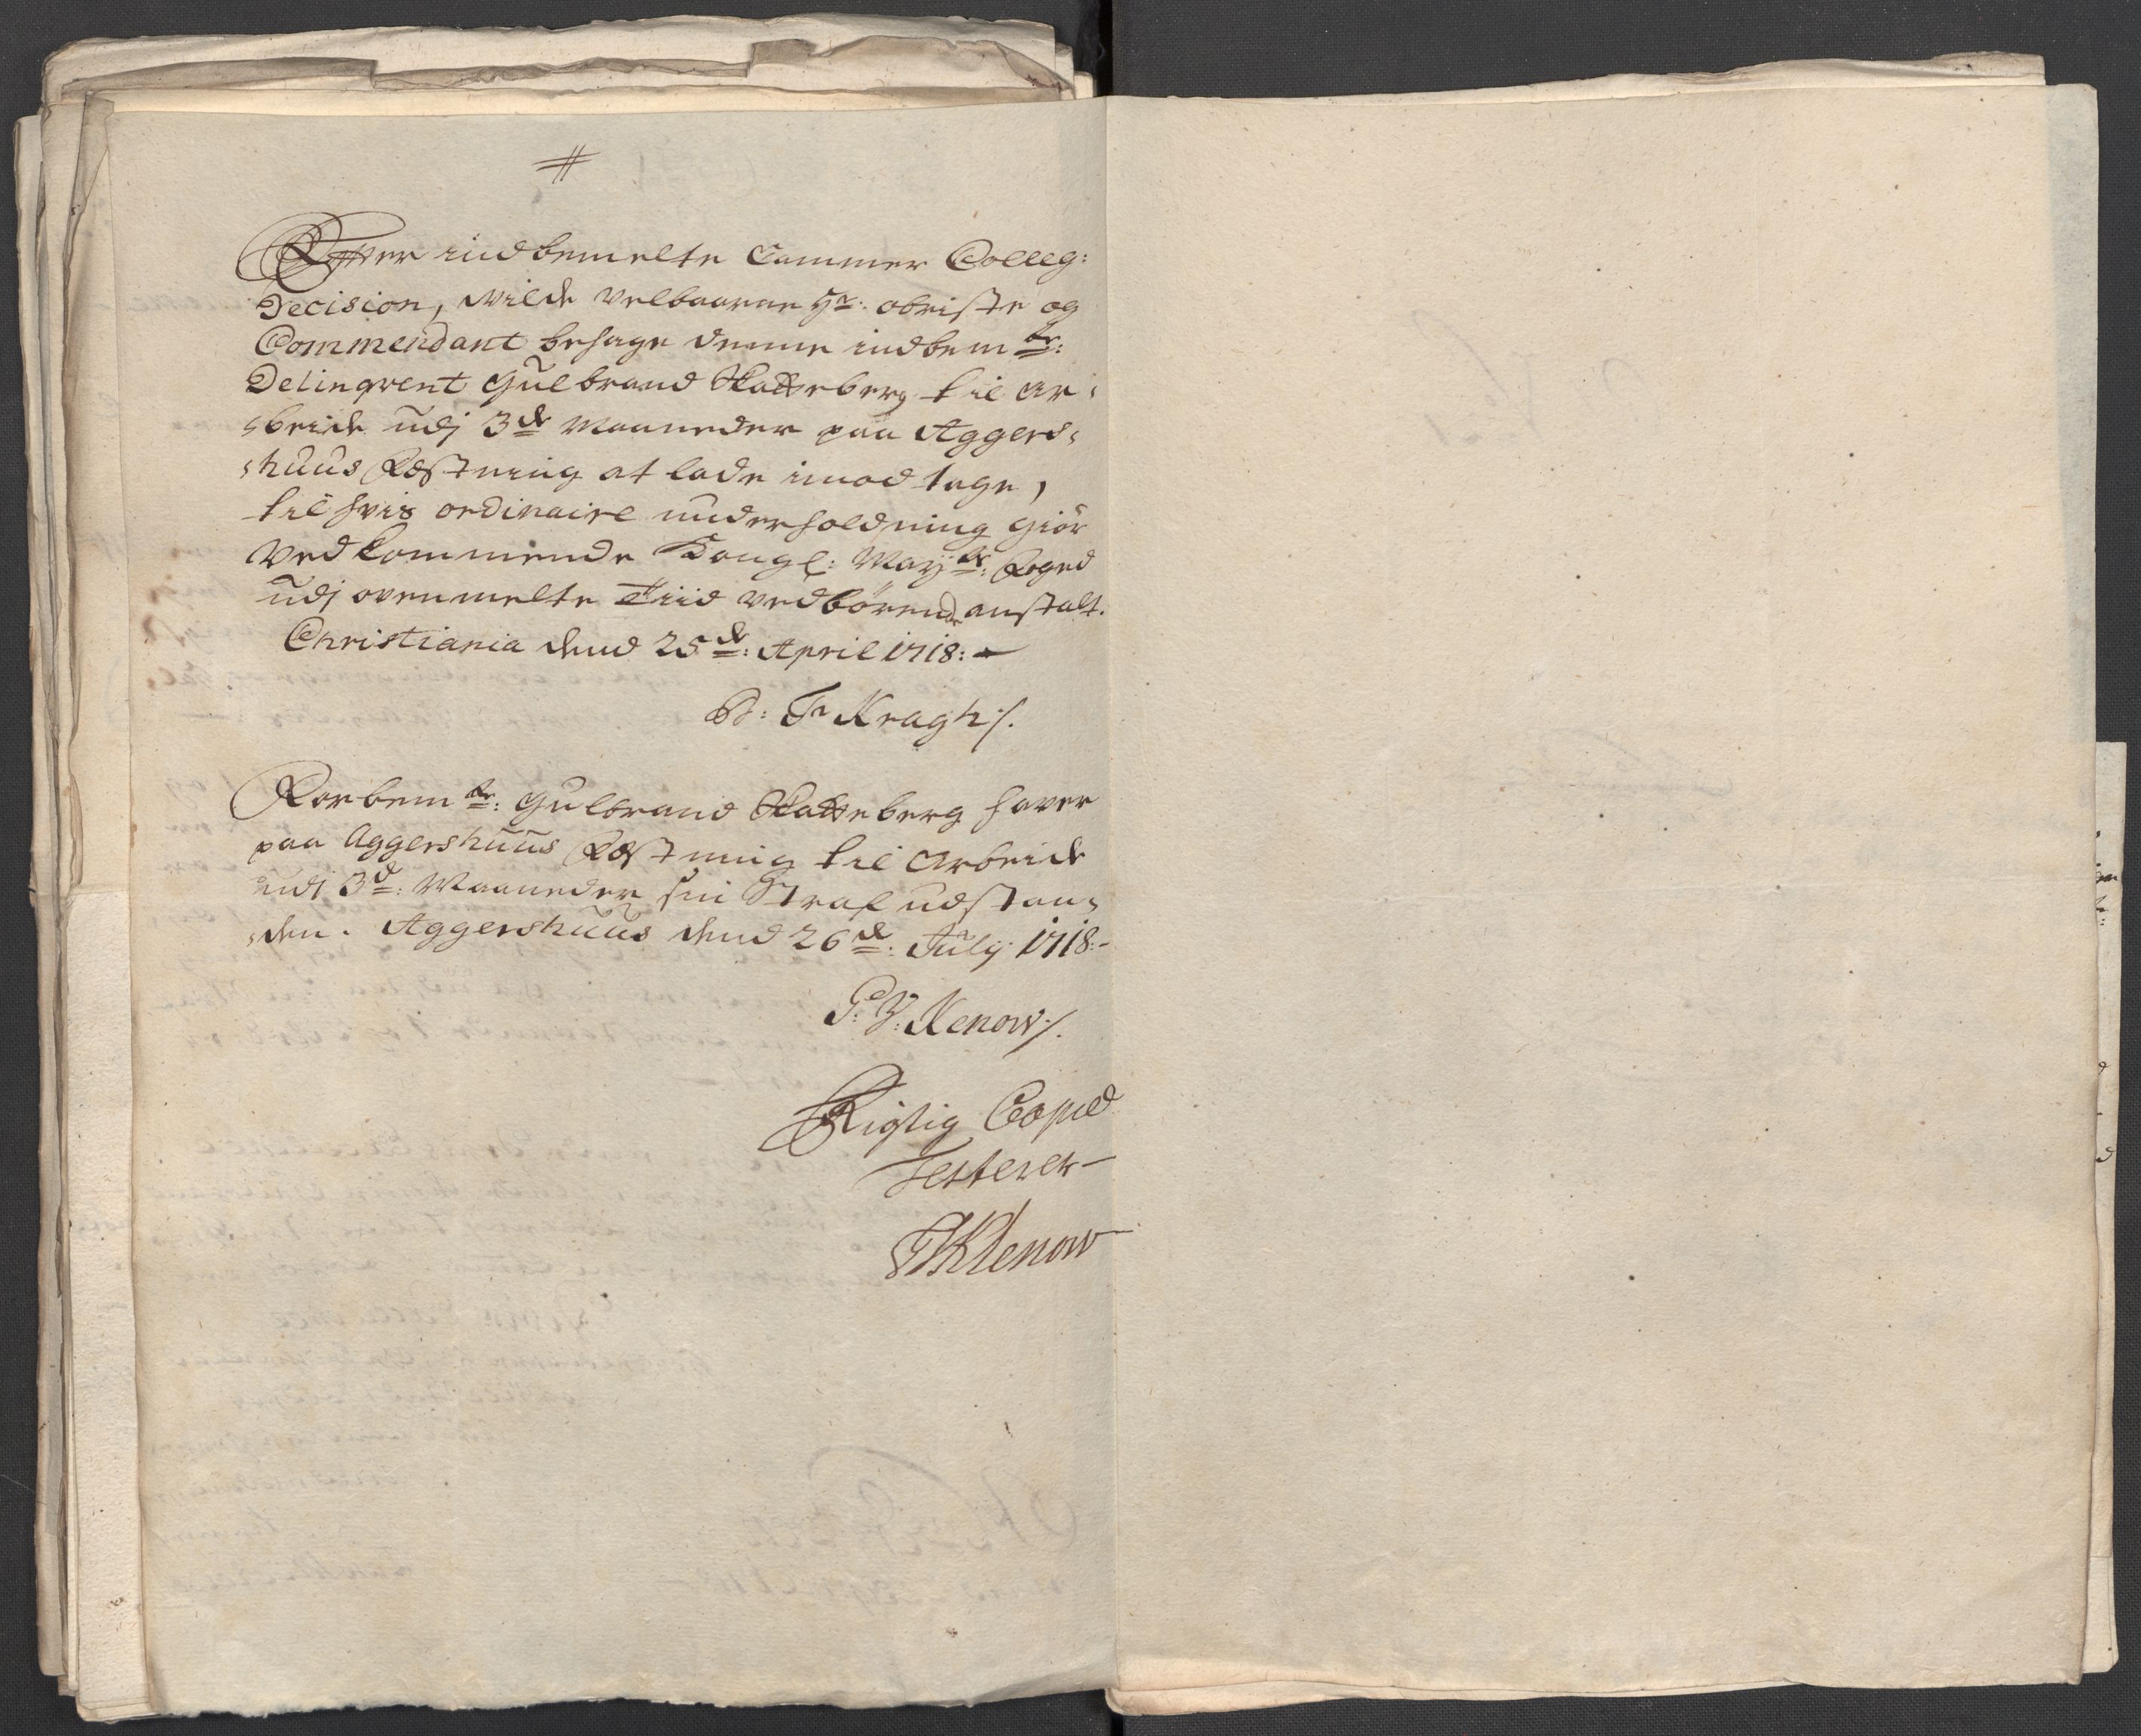 #
Effter indbemelte Cammer Colleg:
Decision, wilde Velbaarne Hr: obriste og
Commendant behage denne indbemte:
Delinqvent Gulbrand Skatteberg til ar-
-beide udj 3de Maaneder paa Aggers-
-huus Fæstning at lade imodtage,
til hvis ordinaire underholdning giör
Vedkommende Kongl: Mayts: Foged
udj ovenmelte Tiid vedbörende anstalt.
Christiania dend 25de: April 1718:
B: Fr Kragh /.
Forbemte: Gulbrand Skatteberg haver
paa Aggershuus Fæstning til Arbeide
udj 3de: Maaneder sin Straf udstan-
-den. Aggershuus dend 26de: July 1718:-
P: V: Klenow /.
Rigtig Copie
Testerer
Klenow